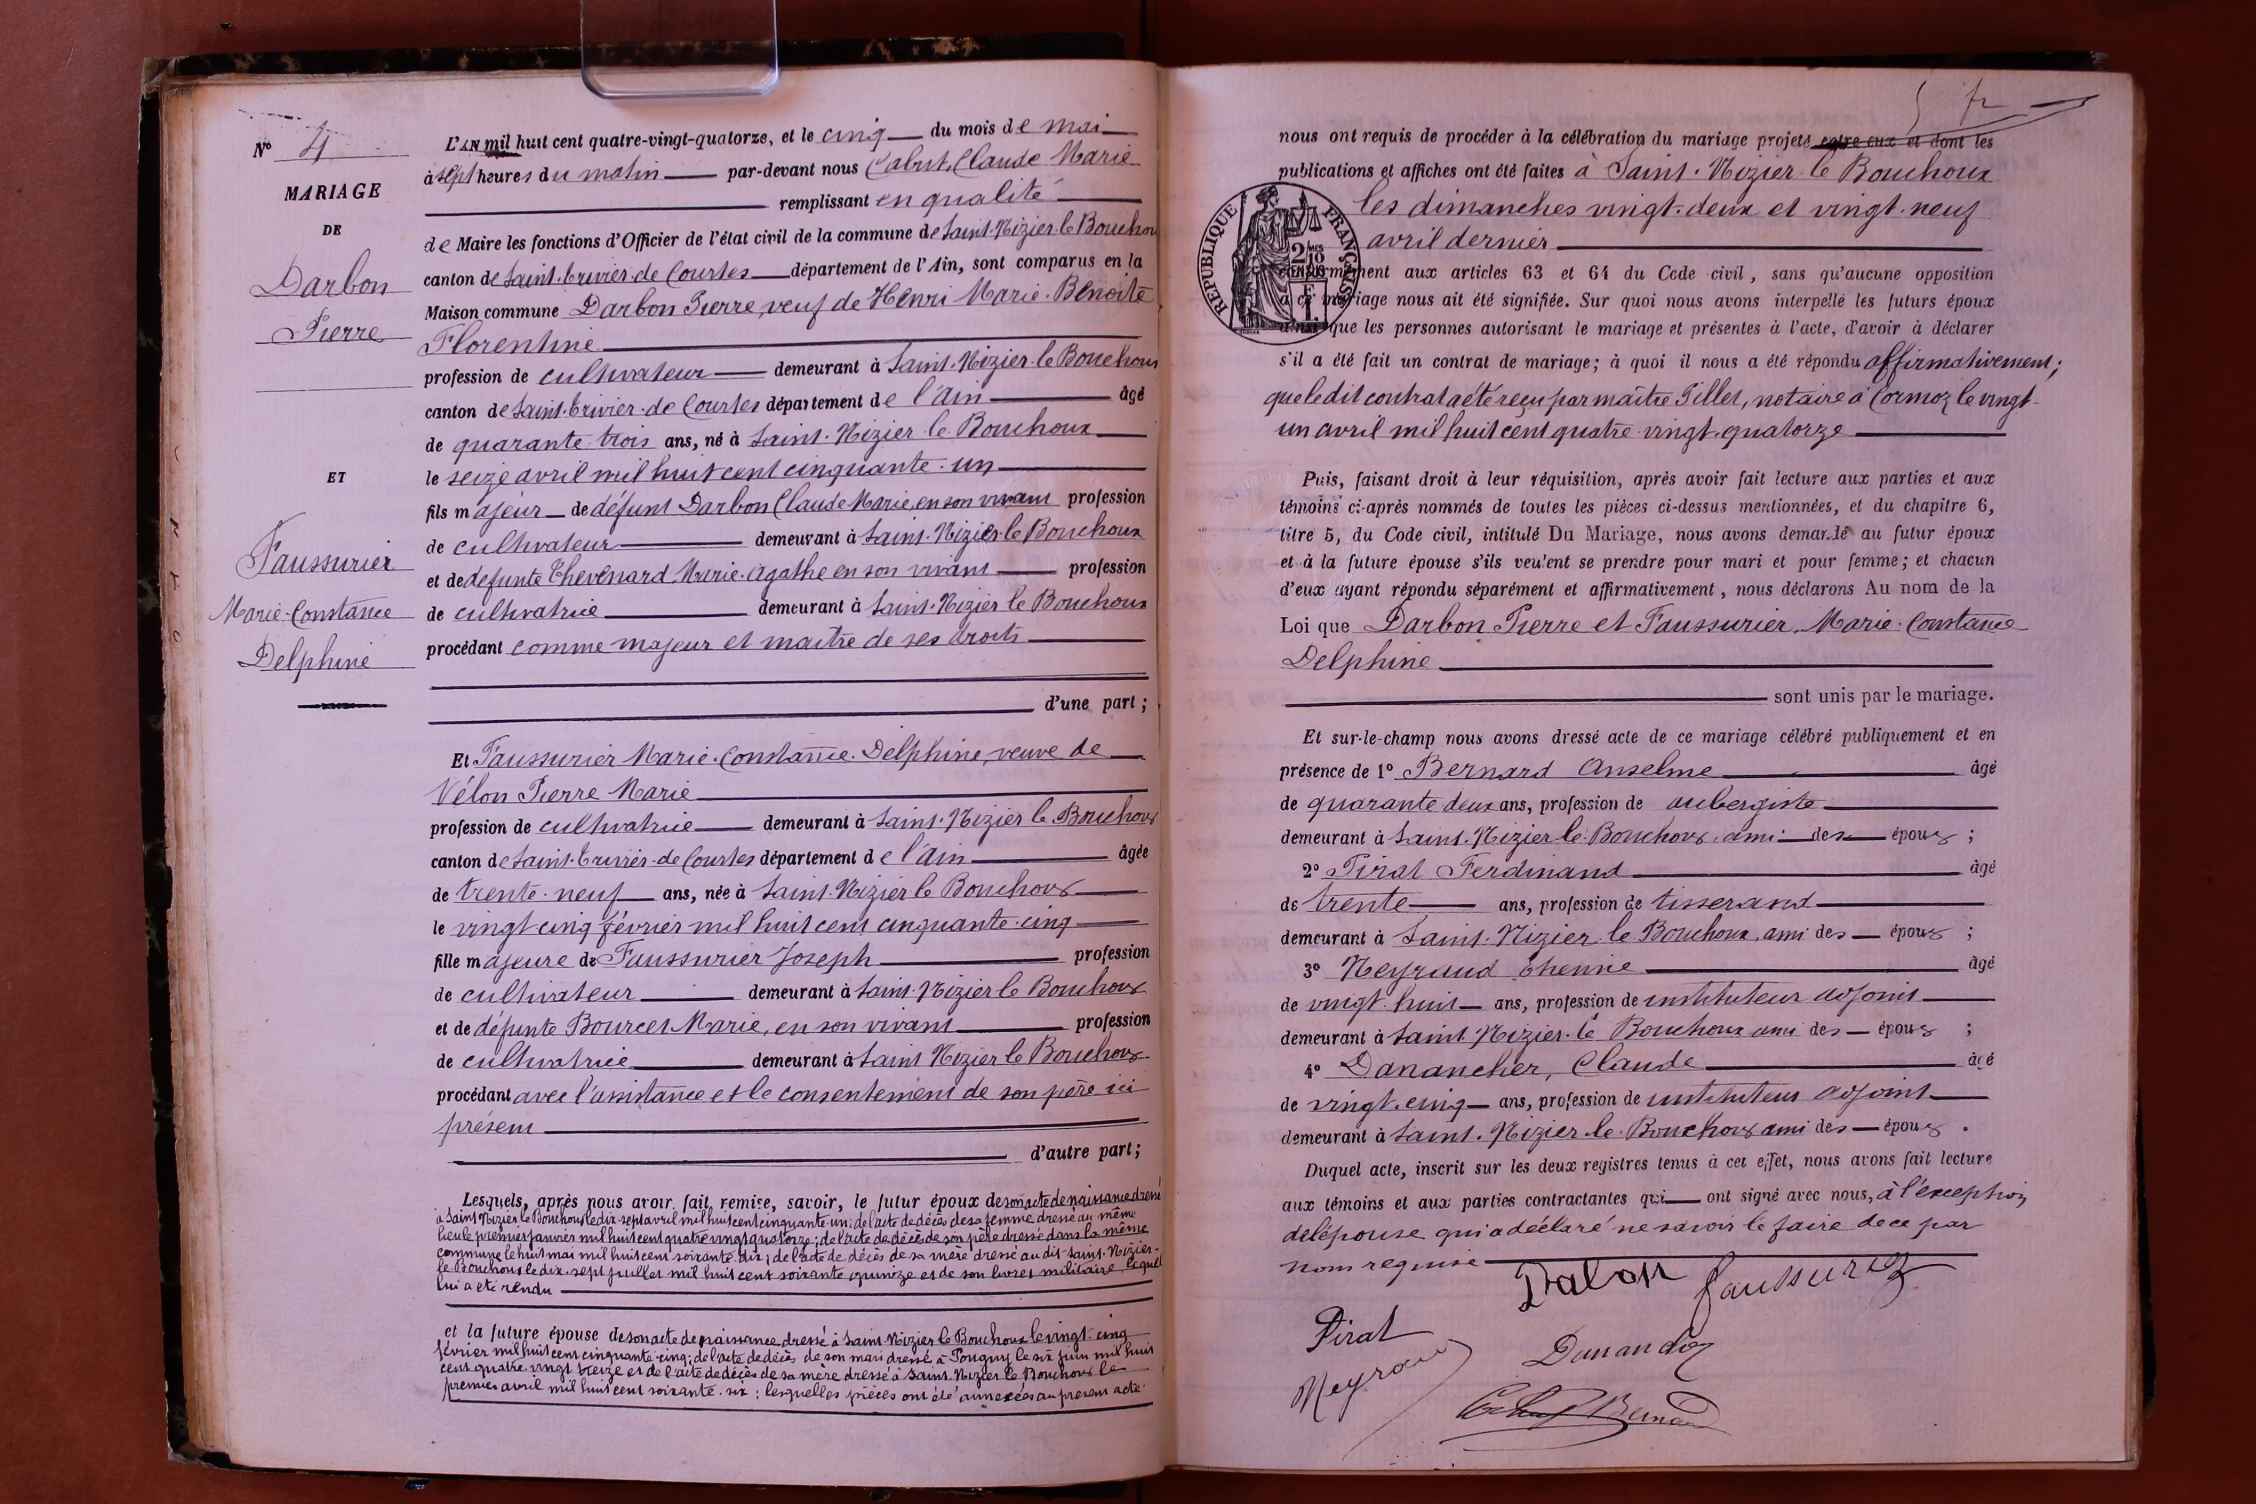 N° 4
MARIAGE
DE
Darbon
Pierre
ET
Faussurier
Marie-Constance
Delphine
L'AN mil huit cent quatre-vingt-quatorze, et le cinq du mois de mai
à sept heures du matin par-devant nous Cabut, Claude Marie
remplissant en qualité
de Maire les fonctions d'Officier de l'état civil de la commune de Saint-Nizier-le-Bouchoux
canton de Saint-Trivier-de-Courtes département de l'Ain, sont comparus en la
Maison commune Darbon Pierre, veuf de Henri Marie-Benoite
Florentine
profession de cultivateur demeurant à Saint-Nizier-le-Bouchoux
canton de Saint-Trivier-de-Courtes département de l'Ain âgé
de quarante trois ans, né à Saint-Nizier-le-Bouchoux
le seize avril mil huit cent cinquante-un
fils majeur de défunt Darbon Claude Marie, en son vivant profession
de cultivateur demeurant à Saint-Nizier-le-Bouchoux
et de defunte Thevenard Marie-Agathe en son vivant profession
de cultivatrice demeurant à Saint-Nizier le Bouchoux
procédant comme majeur et maître de ses droits
d'une part ;
Et Faussurier Marie-Constance-Delphine, veuve de
Vélon Pierre Marie
profession de cultivatrice demeurant à Saint-Nizier le Bouchoux
canton de Saint-Trivier-de-Courtes département de l'Ain âgée
de trente-neuf ans, née à Saint-Nizier le Bouchoux
le vingt-cinq février mil huit cent cinquante-cinq
fille majeure de Faussurier Joseph profession
de cultivateur demeurant à Saint-Nizier le Bouchoux
et de défunte Bourcet Marie, en son vivant profession
de cultivatrice demeurant à Saint Nizier le Bouchoux
procédant avec l'assistance et le consentement de son père ici
présent
d'autre part ;
Lesquels, après nous avoir fait remise, savoir, le futur époux de son acte de naissance dressé
à Saint Nizier le Bouchoux le dix-sept avril mil huit cent cinquante-un ; de l'acte de décès de sa femme dressé au même
lieu le premier janvier mil huit cent quatre vingt quatorze ; de l'acte de décès de son père dressé dans la même
commune le huit mai mil huit cent soixante-dix ; de l'acte de décès de sa mère dressé au dit Saint-Nizier-
le Bouchoux le dix-sept juillet mil huit cent soixante quinze et de son livret militaire lequel
lui a été rendu
et la future épouse de son acte de naissance dressé à Saint Nizier le Bouchoux le vingt-cinq
février mil huit cent cinquante-cinq ; de l'acte de décès de son mari dressé à Pougny le six juin mil huit
cent quatre-vingt treize et de l'acte de décès de sa mère dressé à Saint Nizier le Bouchoux le
premier avril mil huit cent soixante-six ; lesquelles pièces ont été annexées au présent acte.
5 fr
nous ont requis de procéder à la célébration du mariage projeté entre eux et dont les
publications et affiches ont été faites à Saint-Nizier le Bouchoux
les dimanches vingt-deux et vingt-neuf
avril dernier
RÉPUBLIQUE FRANÇAISE
2 MES 10
EN SUS
F.
1.
conformément aux articles 63 et 64 du Code civil, sans qu'aucune opposition
à ce mariage nous ait été signifiée. Sur quoi nous avons interpellé les futurs époux
ainsi que les personnes autorisant le mariage et présentes à l'acte, d'avoir à déclarer
s'il a été fait un contrat de mariage ; à quoi il nous a été répondu affirmativement ;
que le dit contrat a été reçu par maître Pillet, notaire à Cormoz le vingt-
un avril mil huit cent quatre-vingt-quatorze
Puis, faisant droit à leur réquisition, après avoir fait lecture aux parties et aux
témoins ci-après nommés de toutes les pièces ci-dessus mentionnées, et du chapitre 6,
titre 5, du Code civil, intitulé Du Mariage, nous avons demandé au futur époux
et à la future épouse s'ils veulent se prendre pour mari et pour femme ; et chacun
d'eux ayant répondu séparément et affirmativement, nous déclarons Au nom de la
Loi que Darbon Pierre et Faussurier, Marie-Constance
Delphine
sont unis par le mariage.
Et sur-le-champ nous avons dressé acte de ce mariage célébré publiquement et en
présence de 1° Bernard Anselme âgé
de quarante deux ans, profession de aubergiste
demeurant à Saint-Nizier le Bouchoux, ami des époux ;
2° Pirat Ferdinand âgé
de trente ans, profession de tisserand
demeurant à Saint-Nizier le Bouchoux, ami des époux ;
3° Neyraud Etienne âgé
de vingt-huit ans, profession de instituteur adjoint
demeurant à Saint-Nizier-le Bouchoux ami des époux ;
4° Danancher, Claude âgé
de vingt-cinq ans, profession de instituteur adjoint
demeurant à Saint-Nizier-le-Bouchoux ami des époux.
Duquel acte, inscrit sur les deux registres tenus à cet effet, nous avons fait lecture
aux témoins et aux parties contractantes qui ont signé avec nous, à l'exception
de l'épouse qui a déclaré ne savoir le faire de ce par
nous requise
Dalon Faussurier
Pirat
Neyraud
Danancher
Cabut Bernard